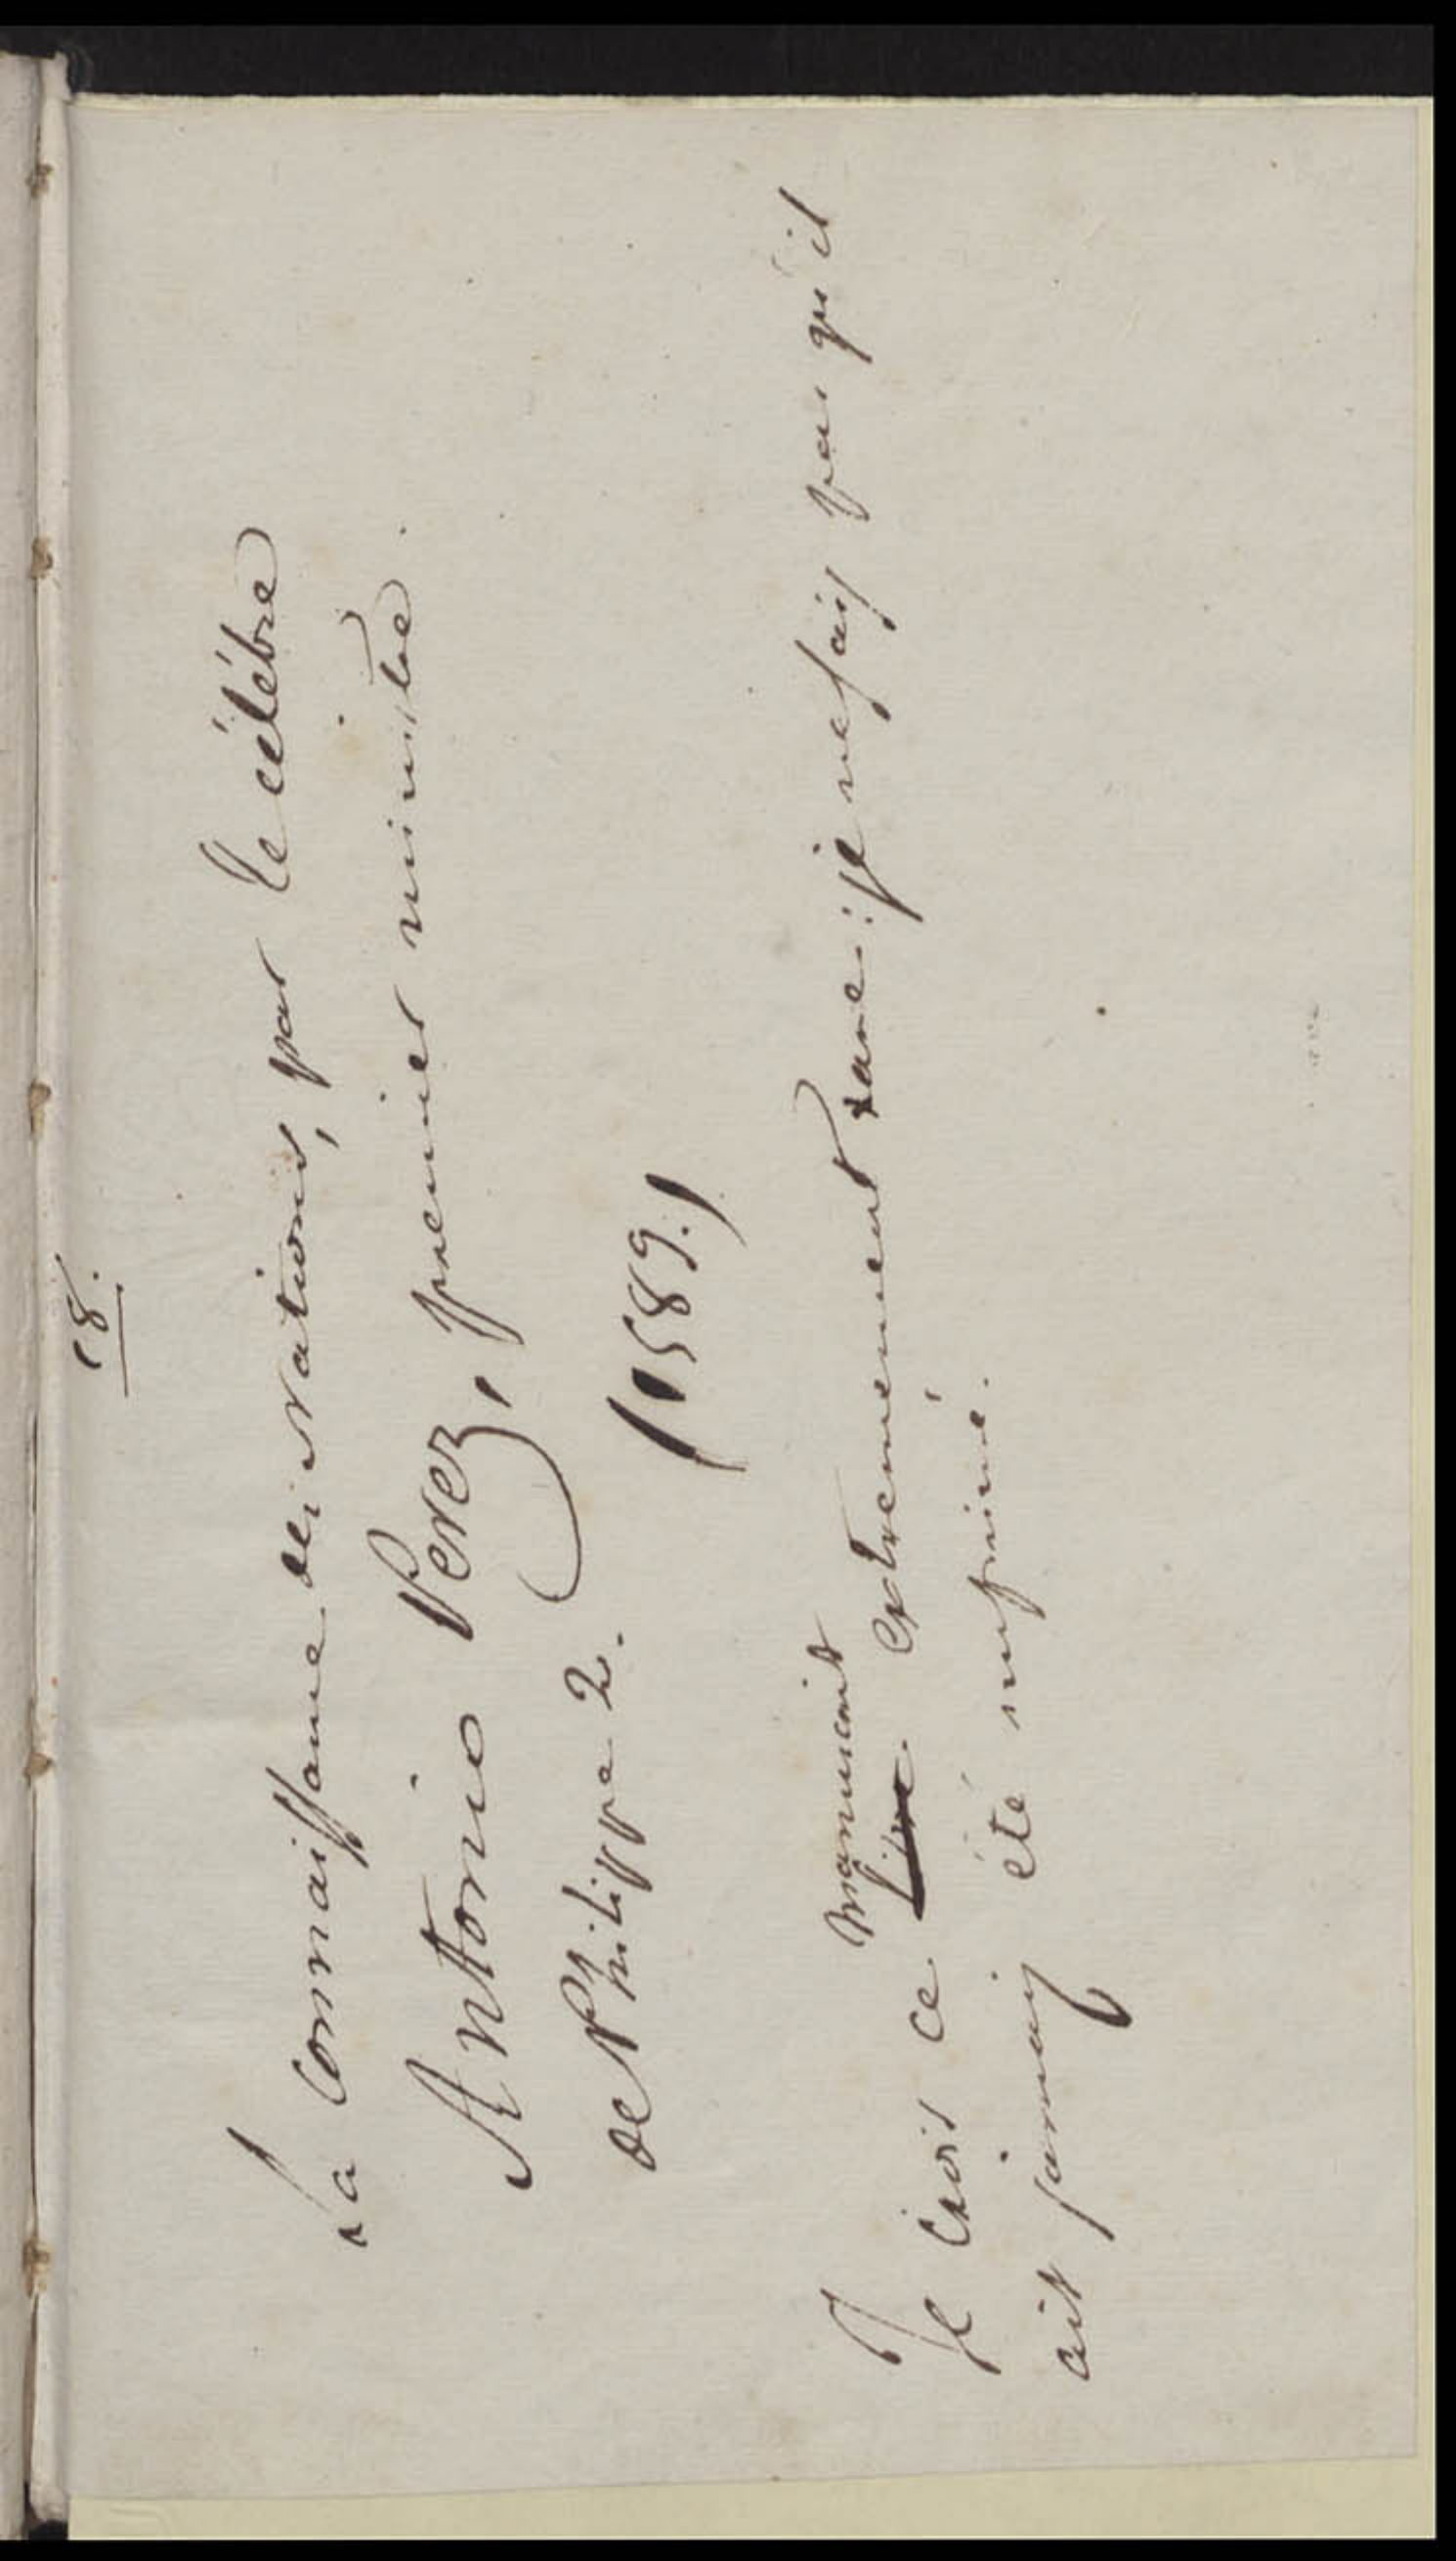 18.
La Connaissance des Nations, par le célébre
Antonio Perez, premier ministre.
de Philippe 2.
(1589.)
manuscrit
Je crois ce livre extremement rare : je ne sais pas qu'il
ait jamais été imprimé.